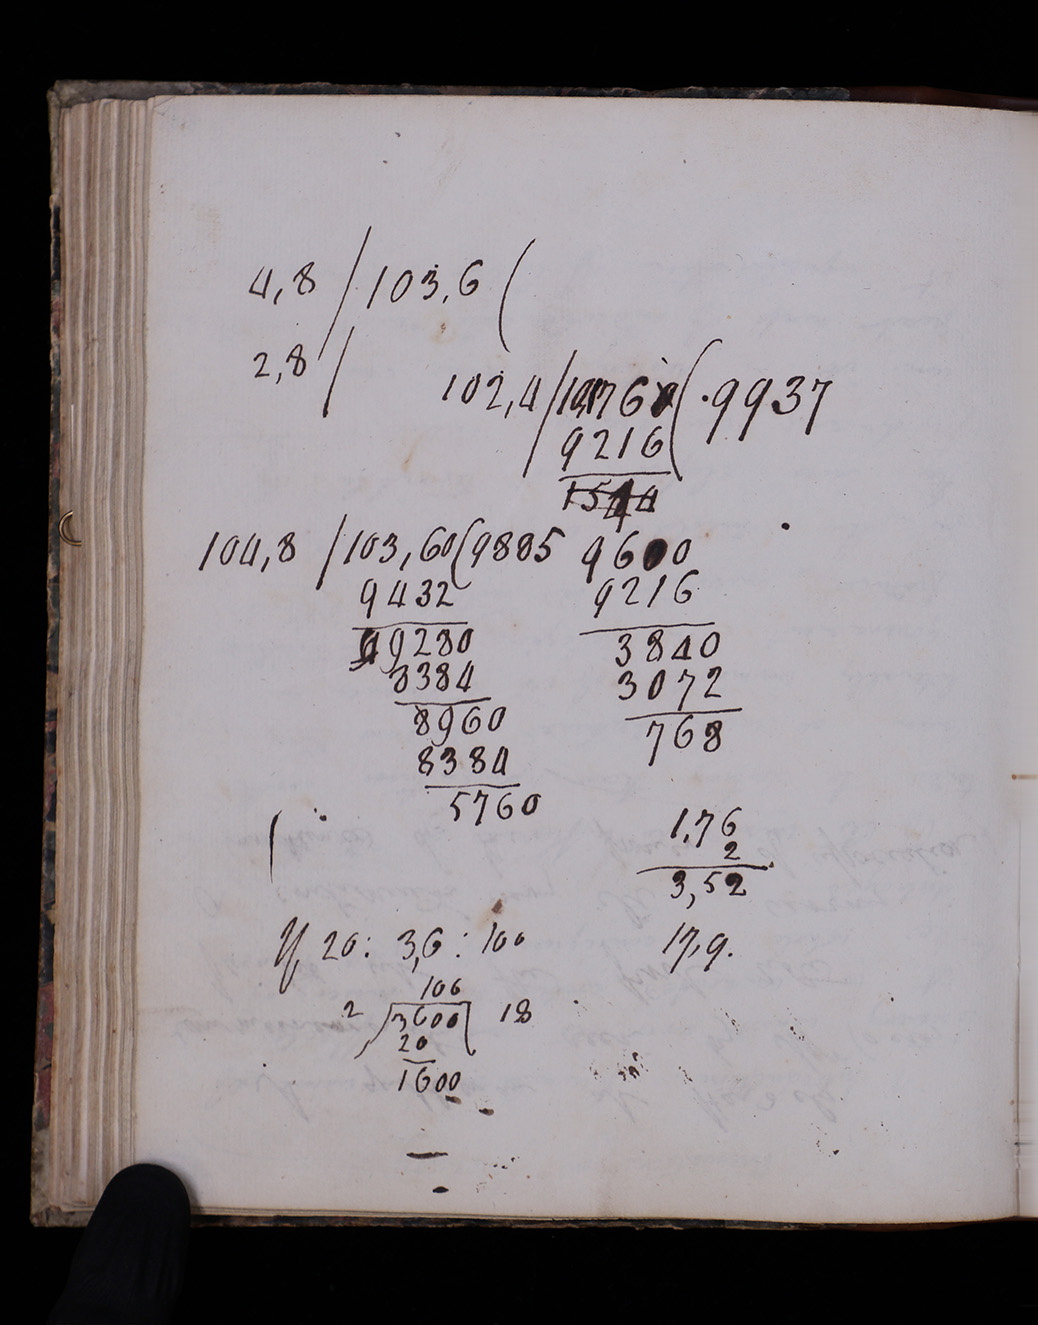 4,8 / 103,6 (
2,8 /
102,4 / 101,76 ( .9937
9216
1544
104,8 / 103,60 ( 9885
9432
9280
8384
8960
8384
5760
9600
9216
3840
3072
768
1,76
2
3,52
17,9.
If 20 : 3,6 : 100
100
2 / 3600 / 18
20
1600